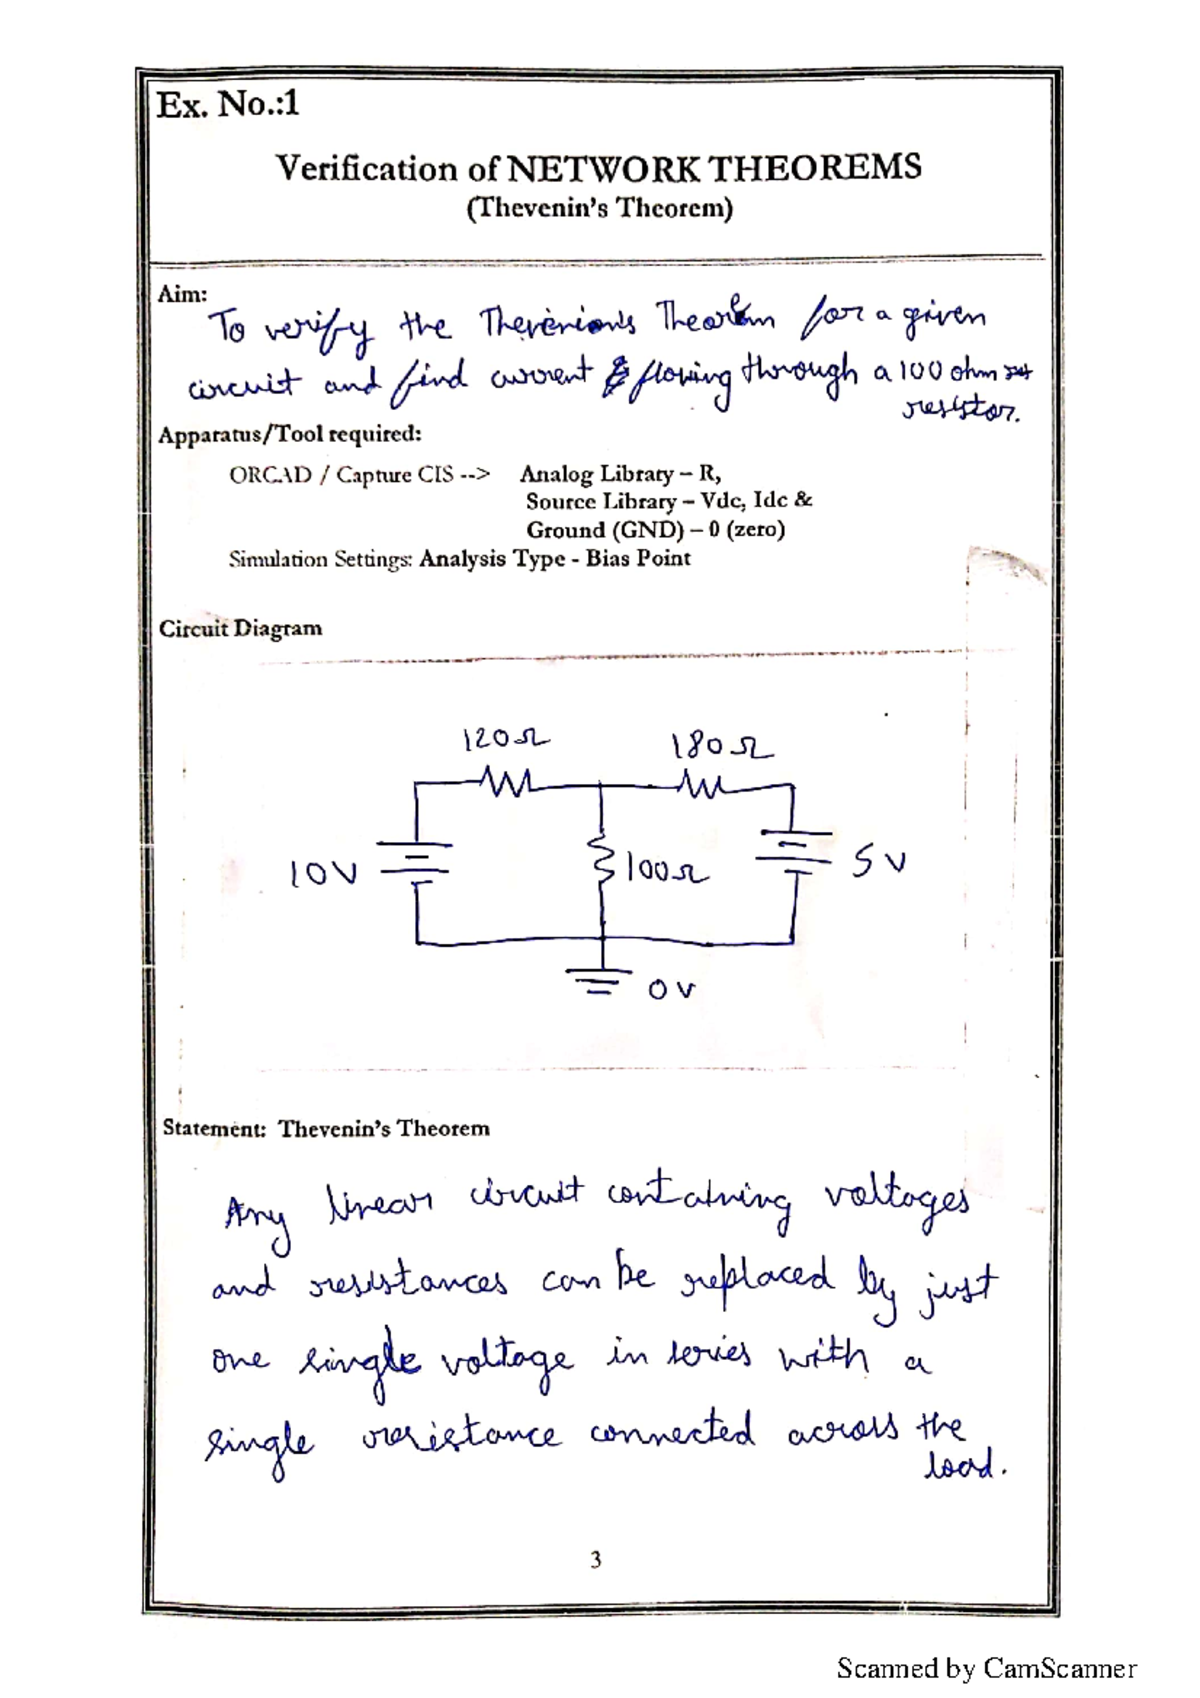 Ex. No.:1
Verification of NETWORK THEOREMS
(Thevenin's Theorem)
Aim:
To verify the Thevenion's Theorem for a given
circuit and find current flowing through a 100 ohm
resistor.
Apparatus/Tool required:
ORCAD / Capture CIS --> Analog Library – R,
Source Library – Vdc, Idc &
Ground (GND) – 0 (zero)
Simulation Settings: Analysis Type - Bias Point
Circuit Diagram
120Ω 180Ω
10V 100Ω 5V
0V
Statement: Thevenin's Theorem
Any linear circuit containing voltages
and resistances can be replaced by just
one single voltage in series with a
single resistance connected across the
load.
3
Scanned by CamScanner